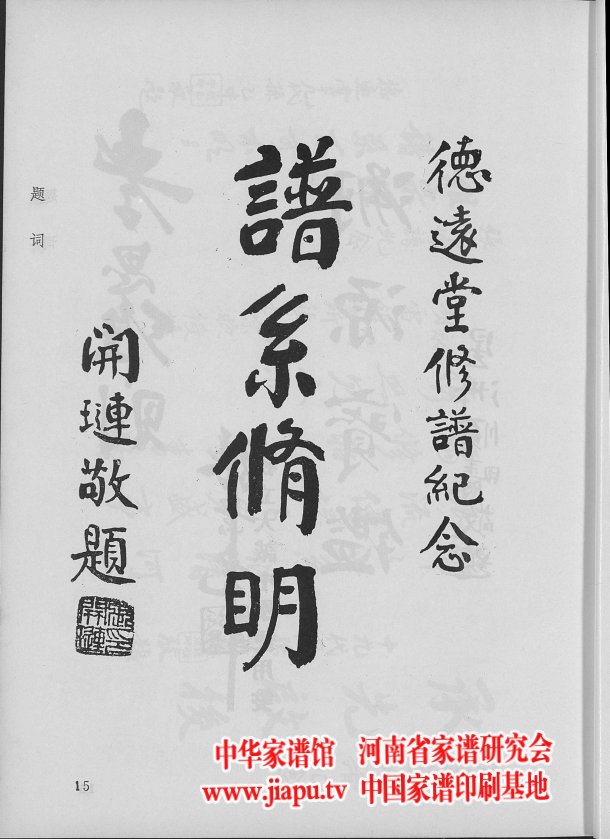 德遠堂修譜紀念
譜系脩明
開璉敬題
题词
15
中华家谱馆 河南省家谱研究会
www.jiapu.tv 中国家谱印刷基地